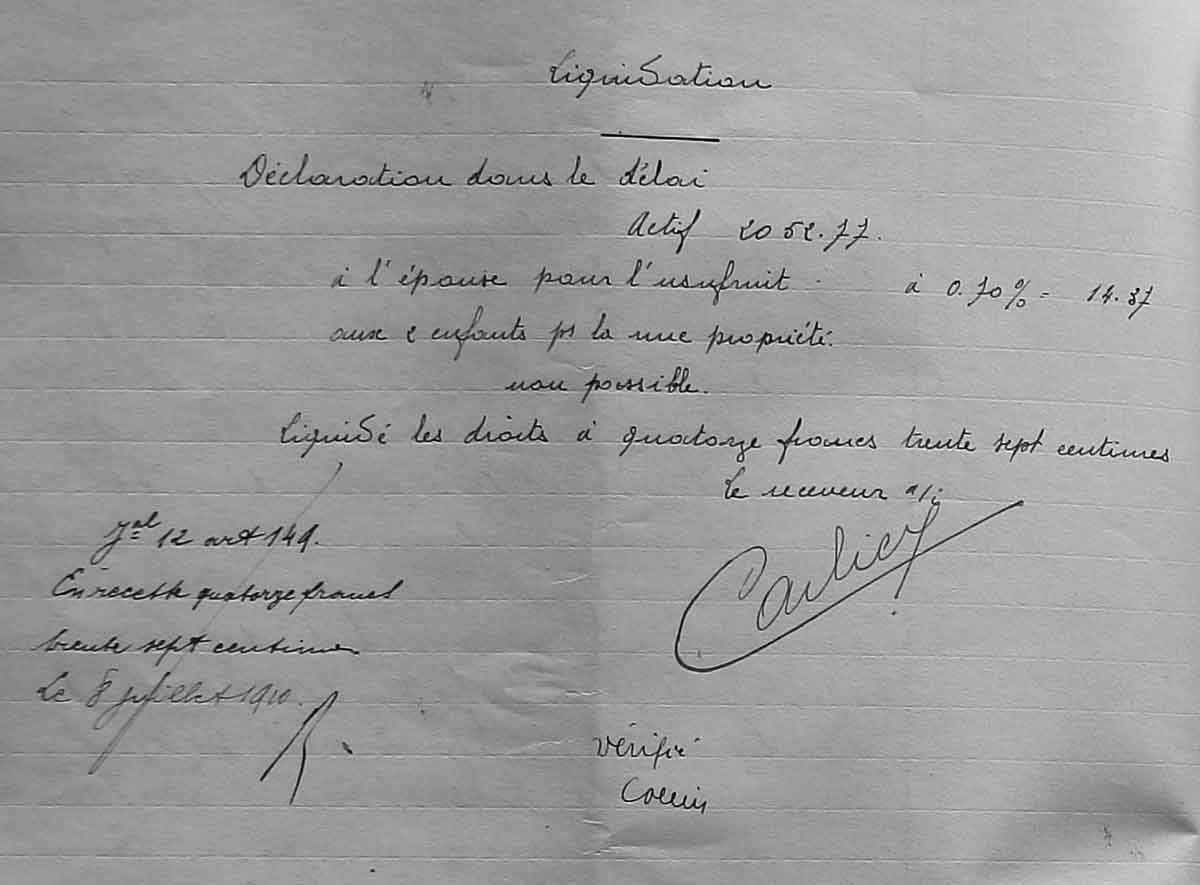 Liquidation
Déclaration dans le délai
Actif 2052.77.
à l'épouse pour l'usufruit à 0.70% = 14.37
aux 2 enfants ps la nue propriété.
non possible.
Liquidé les droits à quatorze francs trente sept centimes
Le receveur a/i
Jal 12 art 149.
En recette quatorze francs
trente sept centimes
Le 8 juillet 1910.
Vérifié